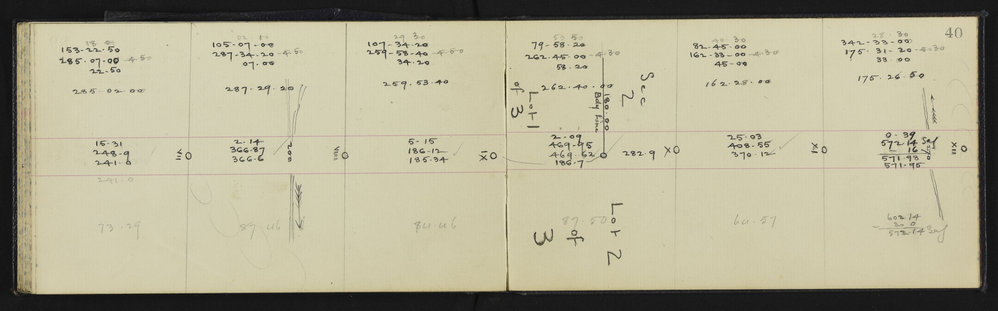 40
18 0
153-22-50
285-07-00 -4-50
22-50
285-02-00
15-31
248-9
241-0
241-0
73-29
VII
02 10
105-07-00
287-34-20 -4-50
07-00
287-29-20
2-14
366-87
366-6
200
89-46
VIII
29 30
107-34-20
259-58-40 -4-50
34-20
259-53-40
5-15
186-12
185-34
84-46
IX
53 50
79-58-20
262-45-00 -4-30
58-20
262-40-00
2-09
469-95
469-62
186-7
87-50
Lot 1
of 3
180-00
Bdy Line
Sec
2
Lot 2
of
3
282-9
X
40 30
82-45-00
162-33-00 -4-30
45-00
162-28-00
25-03
408-55
370-12
64-57
XI
28-30
342-33-00
175-31-20 -4-30
33-00
175-26-50
0-39
572-14 Say
16
571-93
571-95
270
XII
602-14
30-0
572-14 Say